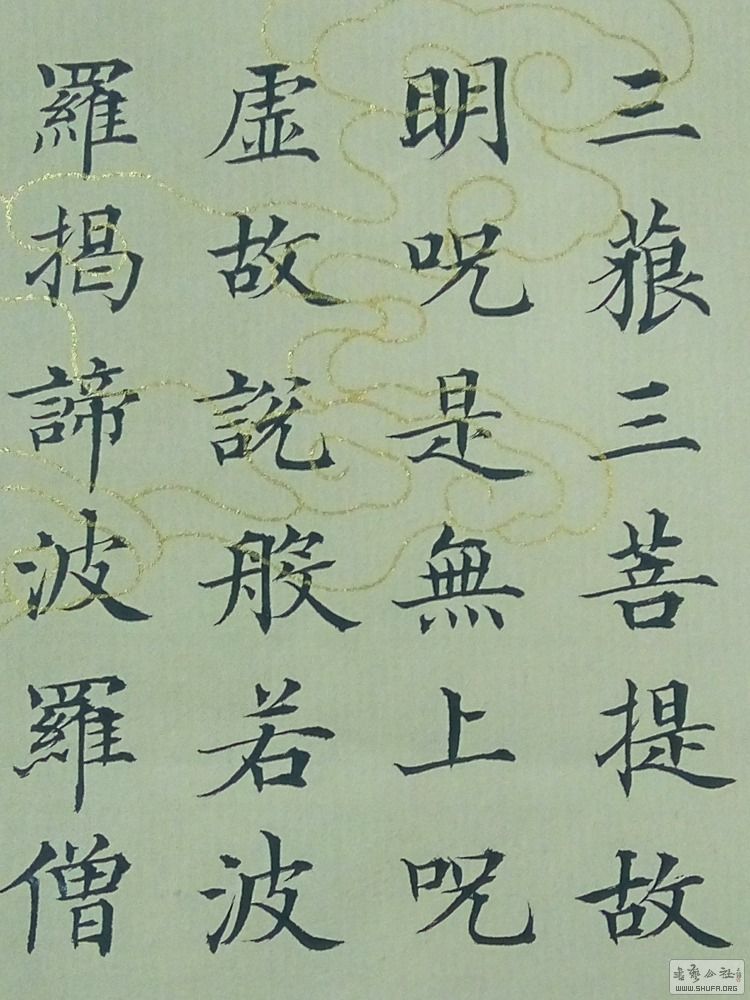 三藐三菩提故
明呪是無上呪
虛故說般若波
羅揭諦波羅僧
書藝公社
WWW.SHUFA.ORG